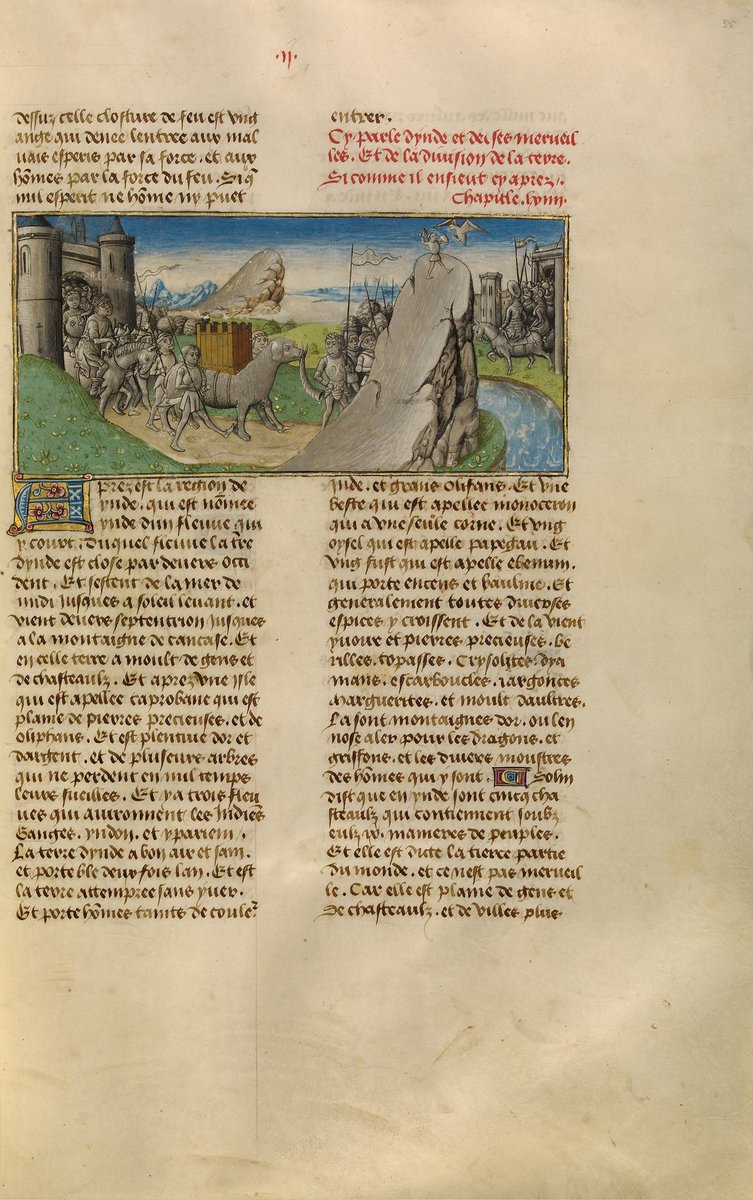 .II.
55
dessuz celle closture de feu est ung
ange qui denee lentree aux mal
uais esperis par sa force . et aux
hões par la force du feu . Si q̃
nul esperit ne hõme ny puet
entrer .
Cy parle dynde et de ses merueil
les . Et de la diuision de la terre .
Si comme il ensieut cy aprez .
Chapitle .
Aprez est la region de
ynde . qui est nõmee
ynde dun fleuue qui
y court . Duquel fleuue la tr̃e
dynde est close par deuers occi
dent . Et sestent de la mer de
midi jusques a soleil leuant . et
vient deuers septentrion jusques
a la montaigne de caucase . Et
en celle terre a moult de gens et
de chasteaulz . Et aprez vne isle
qui est apellee taprobane qui est
plaine de pierres precieuses . et de
oliphans . Et est plentiue dor et
dargent . et de pluseurs arbres
qui ne perdent en nul temps
leurs fueilles . Et y a trois fleu
ues qui auironnent les Indiẽs
Ganges . yndon . et
La terre dynde a bon air et sain .
et porte ble deux fois lan . Et est
la terre attempree sans yuer .
Et porte hões tains de couler̃
jnde . et grans olifans . Et vne
beste qui est apellee monoceron
qui a vne seulle corne . Et vng
oysel qui est apelle papegau . Et
vng fust qui est apelle ebenum .
qui porte encens et baulme . Et
generalement toutes diuerses
espices y croissent . Et de la vient
yuoire et pierres precieuses . be
rilles . topasses . Crysolites . dya
mans . escarboucles . jargonces
Marguerites . et moult daultres .
La sont montaignes dor . ou len
nose aler pour les dragons . et
griffons . et les diuers monstres
des hões qui y sont . Solin
dist que en ynde sont cincq cha
steaulz qui contiennent soubz
eulz manieres de peuples .
Et elle est dicte la tierce partie
du monde . et ce nest pas merueil
le . Car elle est plaine de gens et
de chasteaulz . et de villes plus